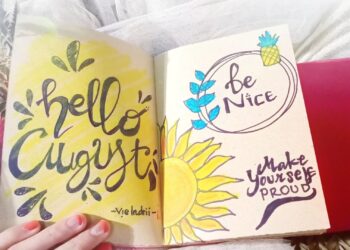 hello
August
Be
NICE
Make
Yourself
PROUD